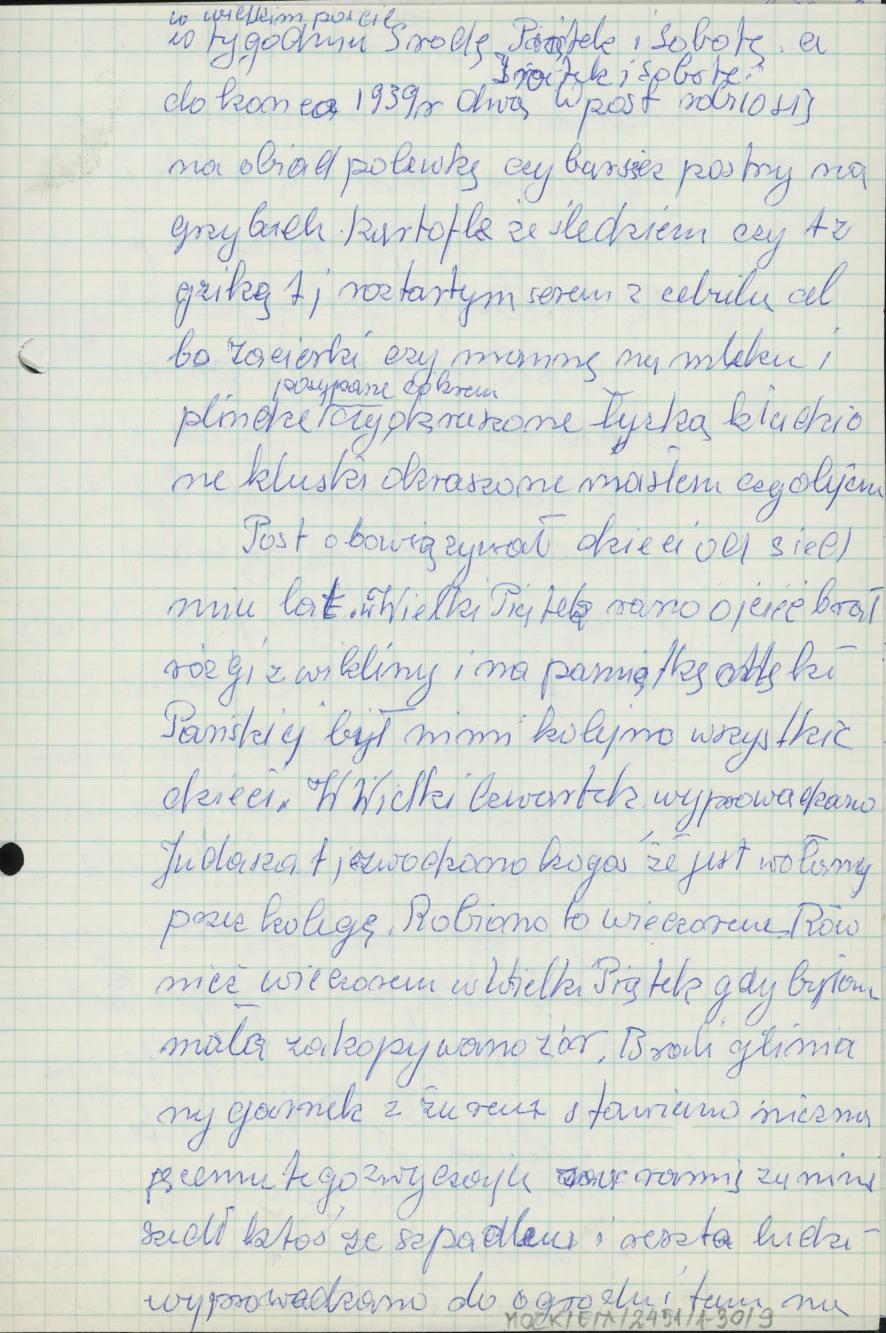 w wielkim poście
w tygodniu Środę Piątek i Sobotę. a
Piątek i Sobotę.
do końca 1939r dwa w post
na obiad polewkę czy barszcz postny na
grzybach. kartofle ze śledziem czy tz
gziką tj roztartym serem z cebulą al
bo zacierki czy mannę na mleku i
posypane cukrem
plincke czy okraszone łyżką kładzio
ne kluski okraszone masłem czy olijem
Post obowiązywał dzieci od sied
miu lat. w Wielki Piątek rano ojciec brał
rózgi z wikliny i na pamiątkę Męki
Pańskiej bił nimi kolejno wszystkie
dzieci. W Wielki Czwartek wyprowadzano
Judasza tj zwodzono kogoś że jest wołany
przez kolegę. Robiano to wieczorem. Rów
nież wieczorem w Wielki Piątek gdy byłam
mała zakopywano żur. Brali glinia
ny garnek z żurem stawiano niezna
jącemu tego zwyczaju na ramię za nim
szedł ktoś ze szpadlem i reszta ludzi
wyprowadzano do ogrodu i tam mu
MOCK/EIA/2451/1-30/9